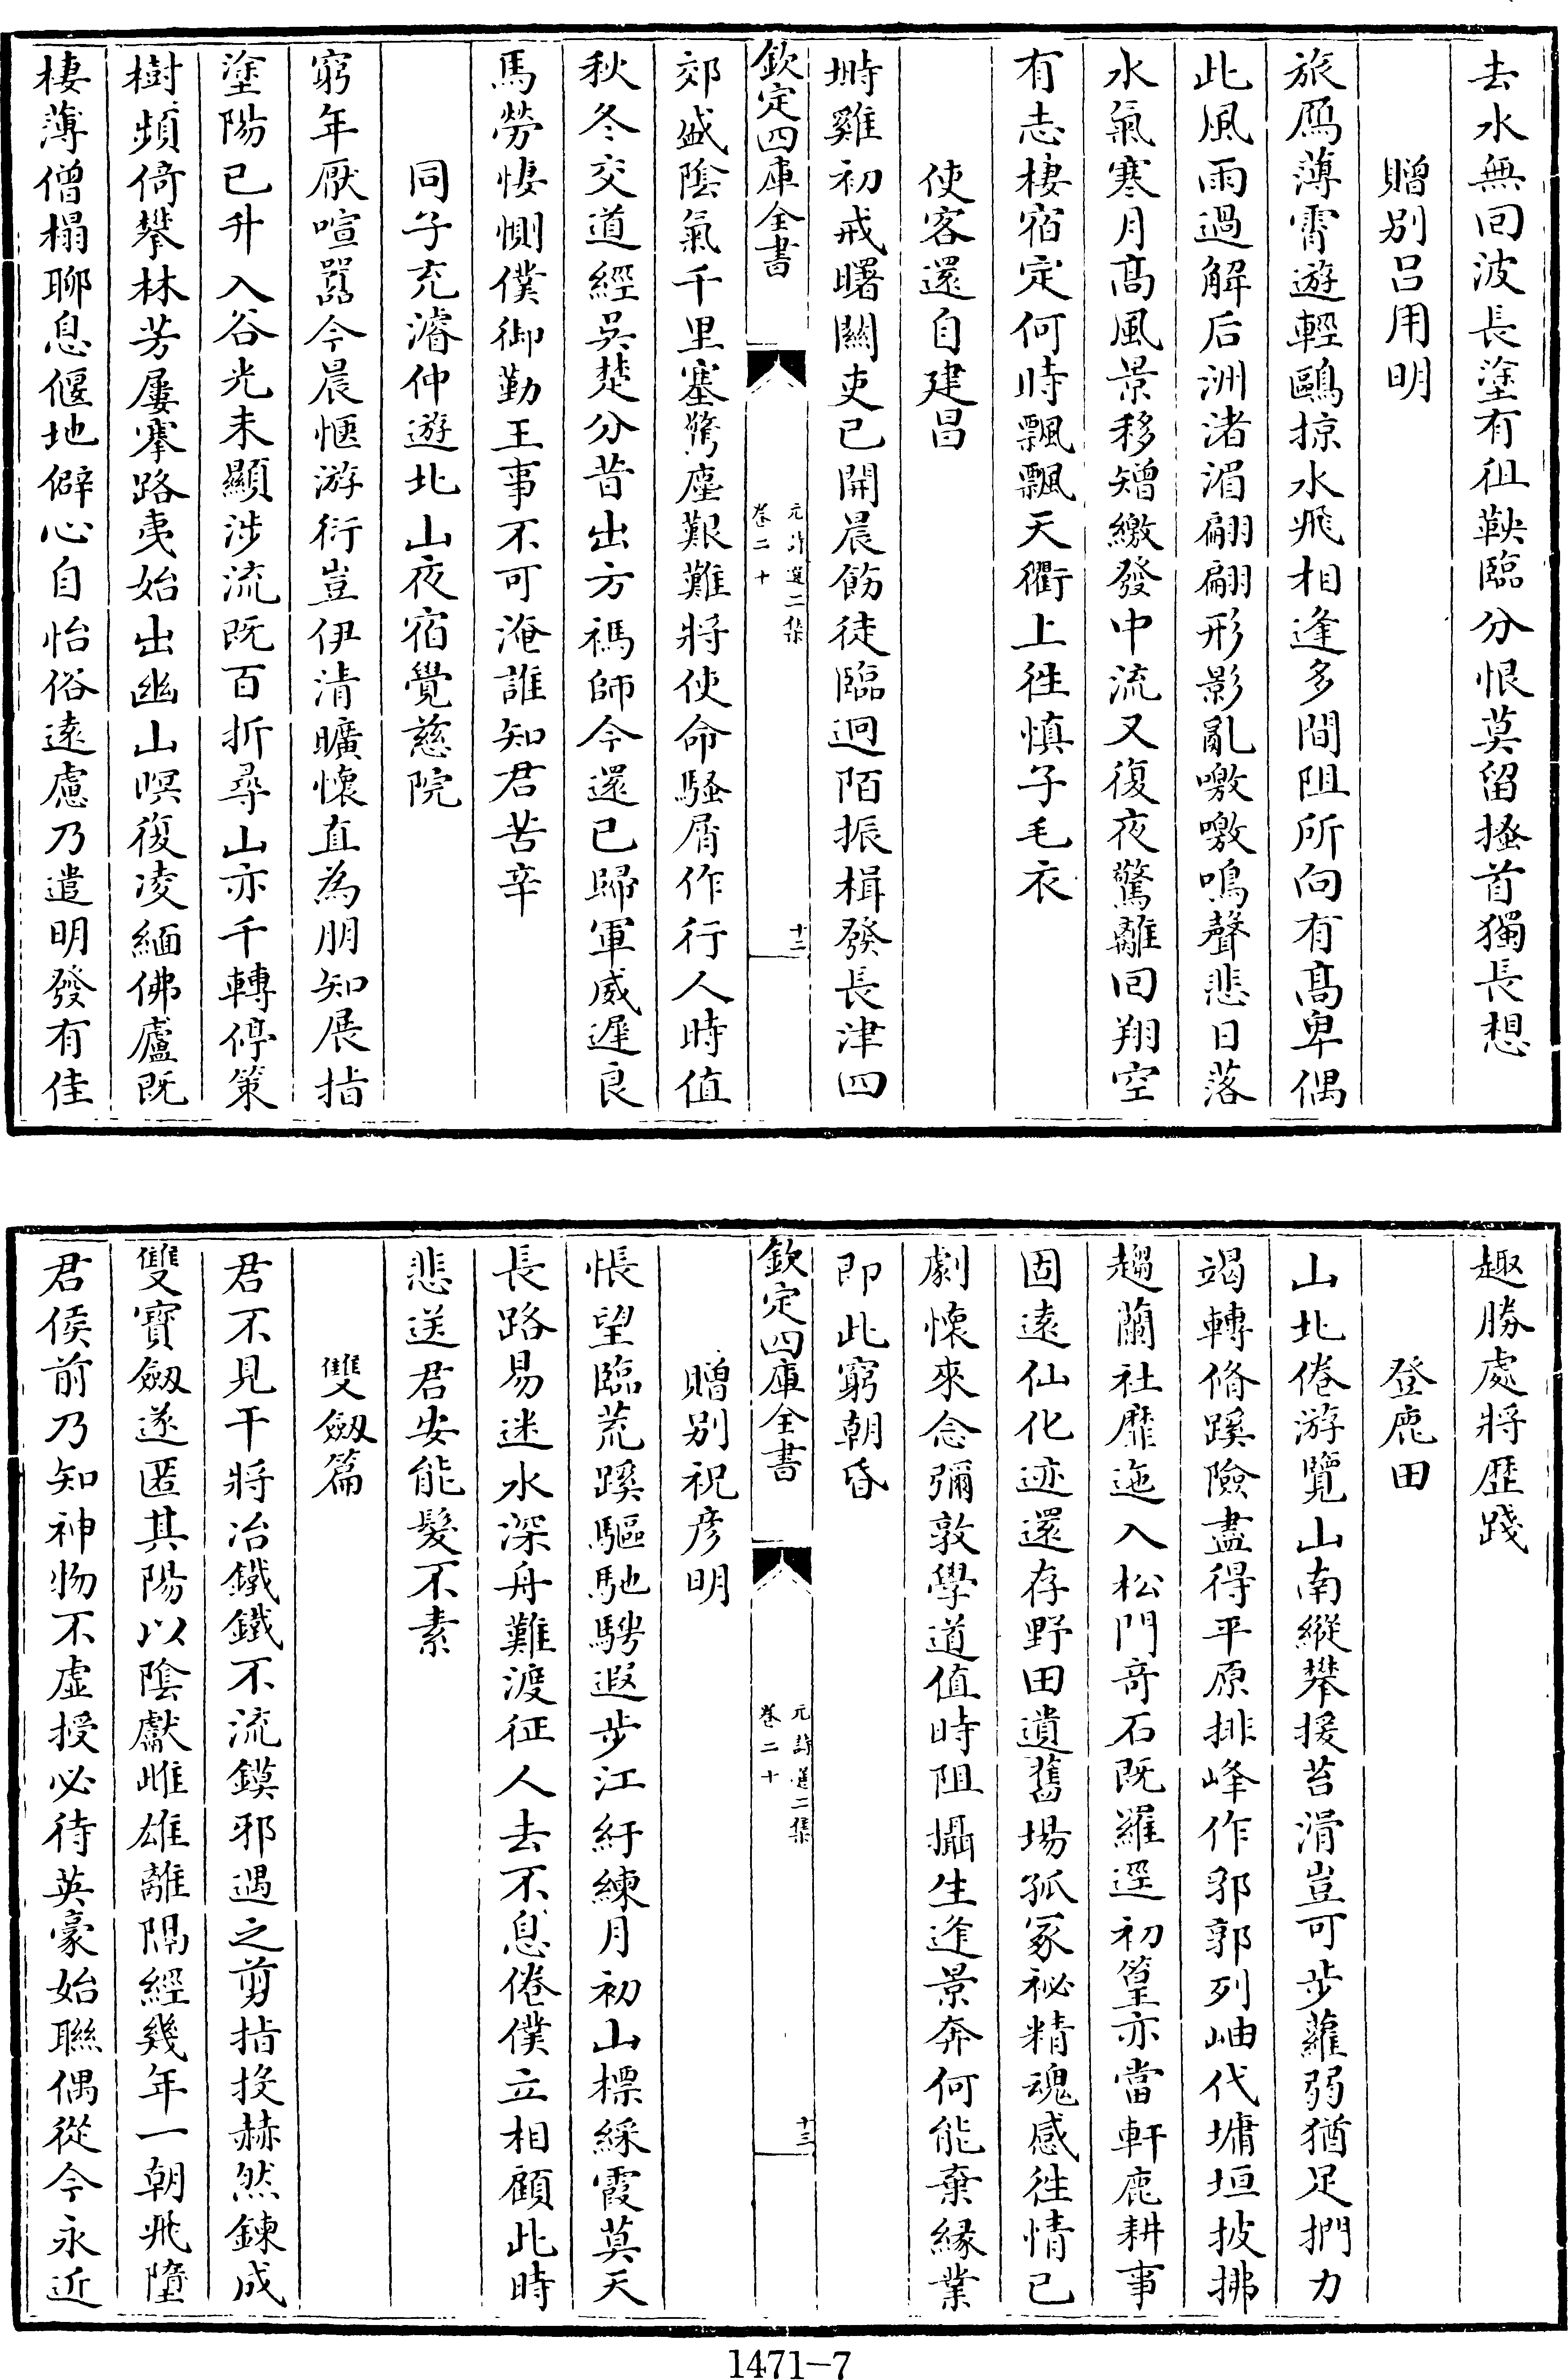 去水無回波長塗有徂鞅臨分恨莫留搔首獨長想
贈别吕用明
旅鴈薄霄遊輕鷗掠水飛相逢多間阻所向有髙卑偶
此風雨過解后洲渚湄翩翩形影亂噭噭鳴聲悲日落
水氣寒月髙風景移矰繳發中流又復夜驚離回翔空
有志棲宿定何時飄飄天衢上徃慎子毛衣
使客還自建昌
塒雞初戒曙闗吏已開晨飭徒臨迥陌振楫發長津四
欽定四庫全書
元詩選二集
卷二十
十二
郊盛陰氣千里塞驚塵艱難將使命騷屑作行人時值
秋冬交道經吳楚分昔出方禡師今還已歸軍威遲良
馬勞悽惻僕御勤王事不可淹誰知君苦辛
同子充濬仲遊北山夜宿覺慈院
窮年厭喧囂今晨愜游衍豈伊清曠懷直為朋知展指
塗陽已升入谷光未顯涉流既百折尋山亦千轉停策
樹頻倚攀林芳屢搴路夷始出幽山暝復凌緬佛廬既
棲薄僧榻聊息偃地僻心自怡俗遠慮乃遣明發有佳
趣勝處將歴踐
登鹿田
山北倦游覽山南縱攀援苔滑豈可步蘿弱猶足捫力
竭轉脩蹊險盡得平原排峰作郛郭列岫代墉垣披拂
趨蘭社靡迤入松門竒石既羅逕初篁亦當軒鹿耕事
固遠仙化迹還存野田遺舊場孤冢祕精魂感徃情已
劇懷來念彌敦學道值時阻攝生逢景奔何能棄縁業
即此窮朝昏
欽定四庫全書
元詩選二集
卷二十
十三
贈别祝彦明
悵望臨荒蹊驅馳騁遐步江紆練月初山標綵霞莫天
長路易迷水深舟難渡征人去不息倦僕立相顧此時
悲送君安能髮不素
雙劔篇
君不見干將冶鐵鐵不流鏌邪遇之剪指投赫然鍊成
雙寶劔遂匿其陽以陰獻雌雄離隔經幾年一朝飛墮
君侯前乃知神物不虚授必待英豪始聯偶從今永近
1471-7